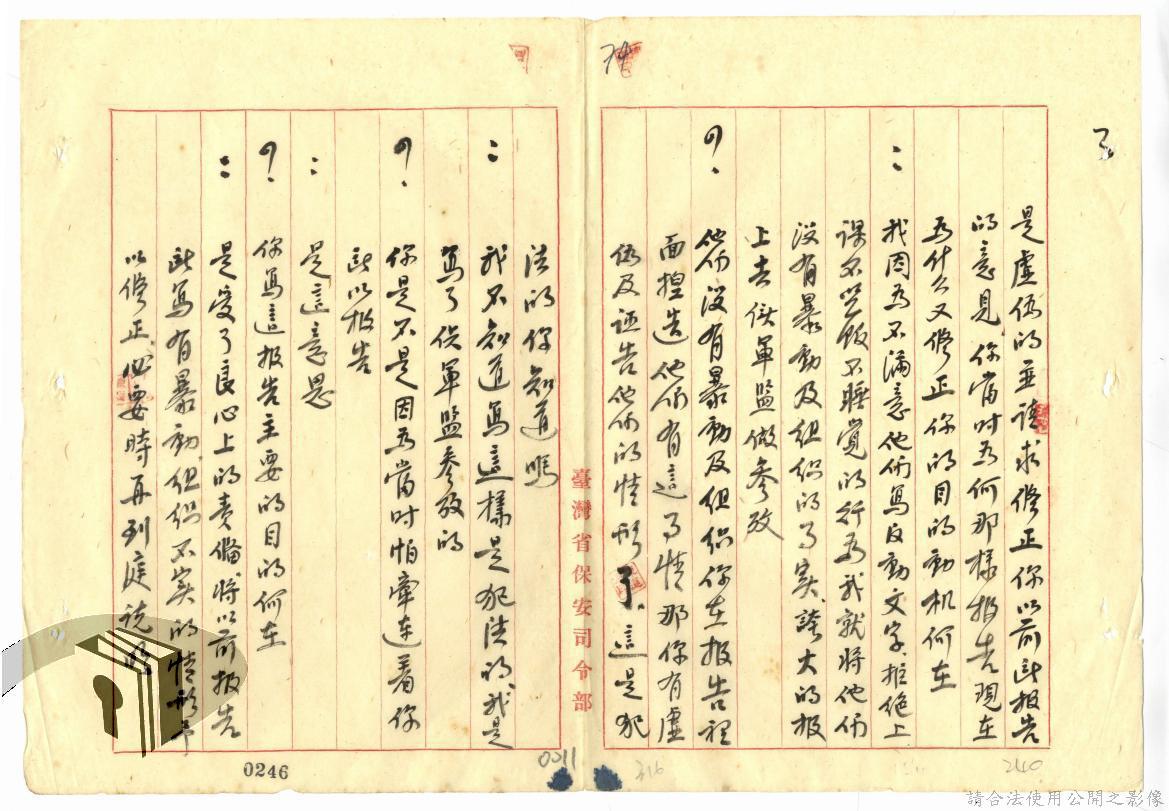 74
了
是虛偽的並請求修正你以前所報告
的意見你當时為何那樣報告現在
為什么又修正你的目的動机何在
：我因為不滿意他們寫反動文字拒絶上
課不吃飯不睡覺的行為我就將他們
沒有暴動及組織的了实誇大的报
上去供軍監做參攷
?、他們沒有暴動及組織你在报告裡
面捏造他們有這了情那你有虛
偽及誣告他們的情形了、這是犯
臺灣省保安司令部
法的你知道嗎
：我不知道寫這樣是犯法的我是
寫了供軍監參攷的
?、你是不是因為當时怕牽連着你
所以报告
：是這意思
?、你寫這报告主要的目的何在
：是受了良心上的責備將以前报告
所寫有暴動組織不实的情形予
以修正必要時再到庭説明
0246
0011
316
240
請合法使用公開之影像